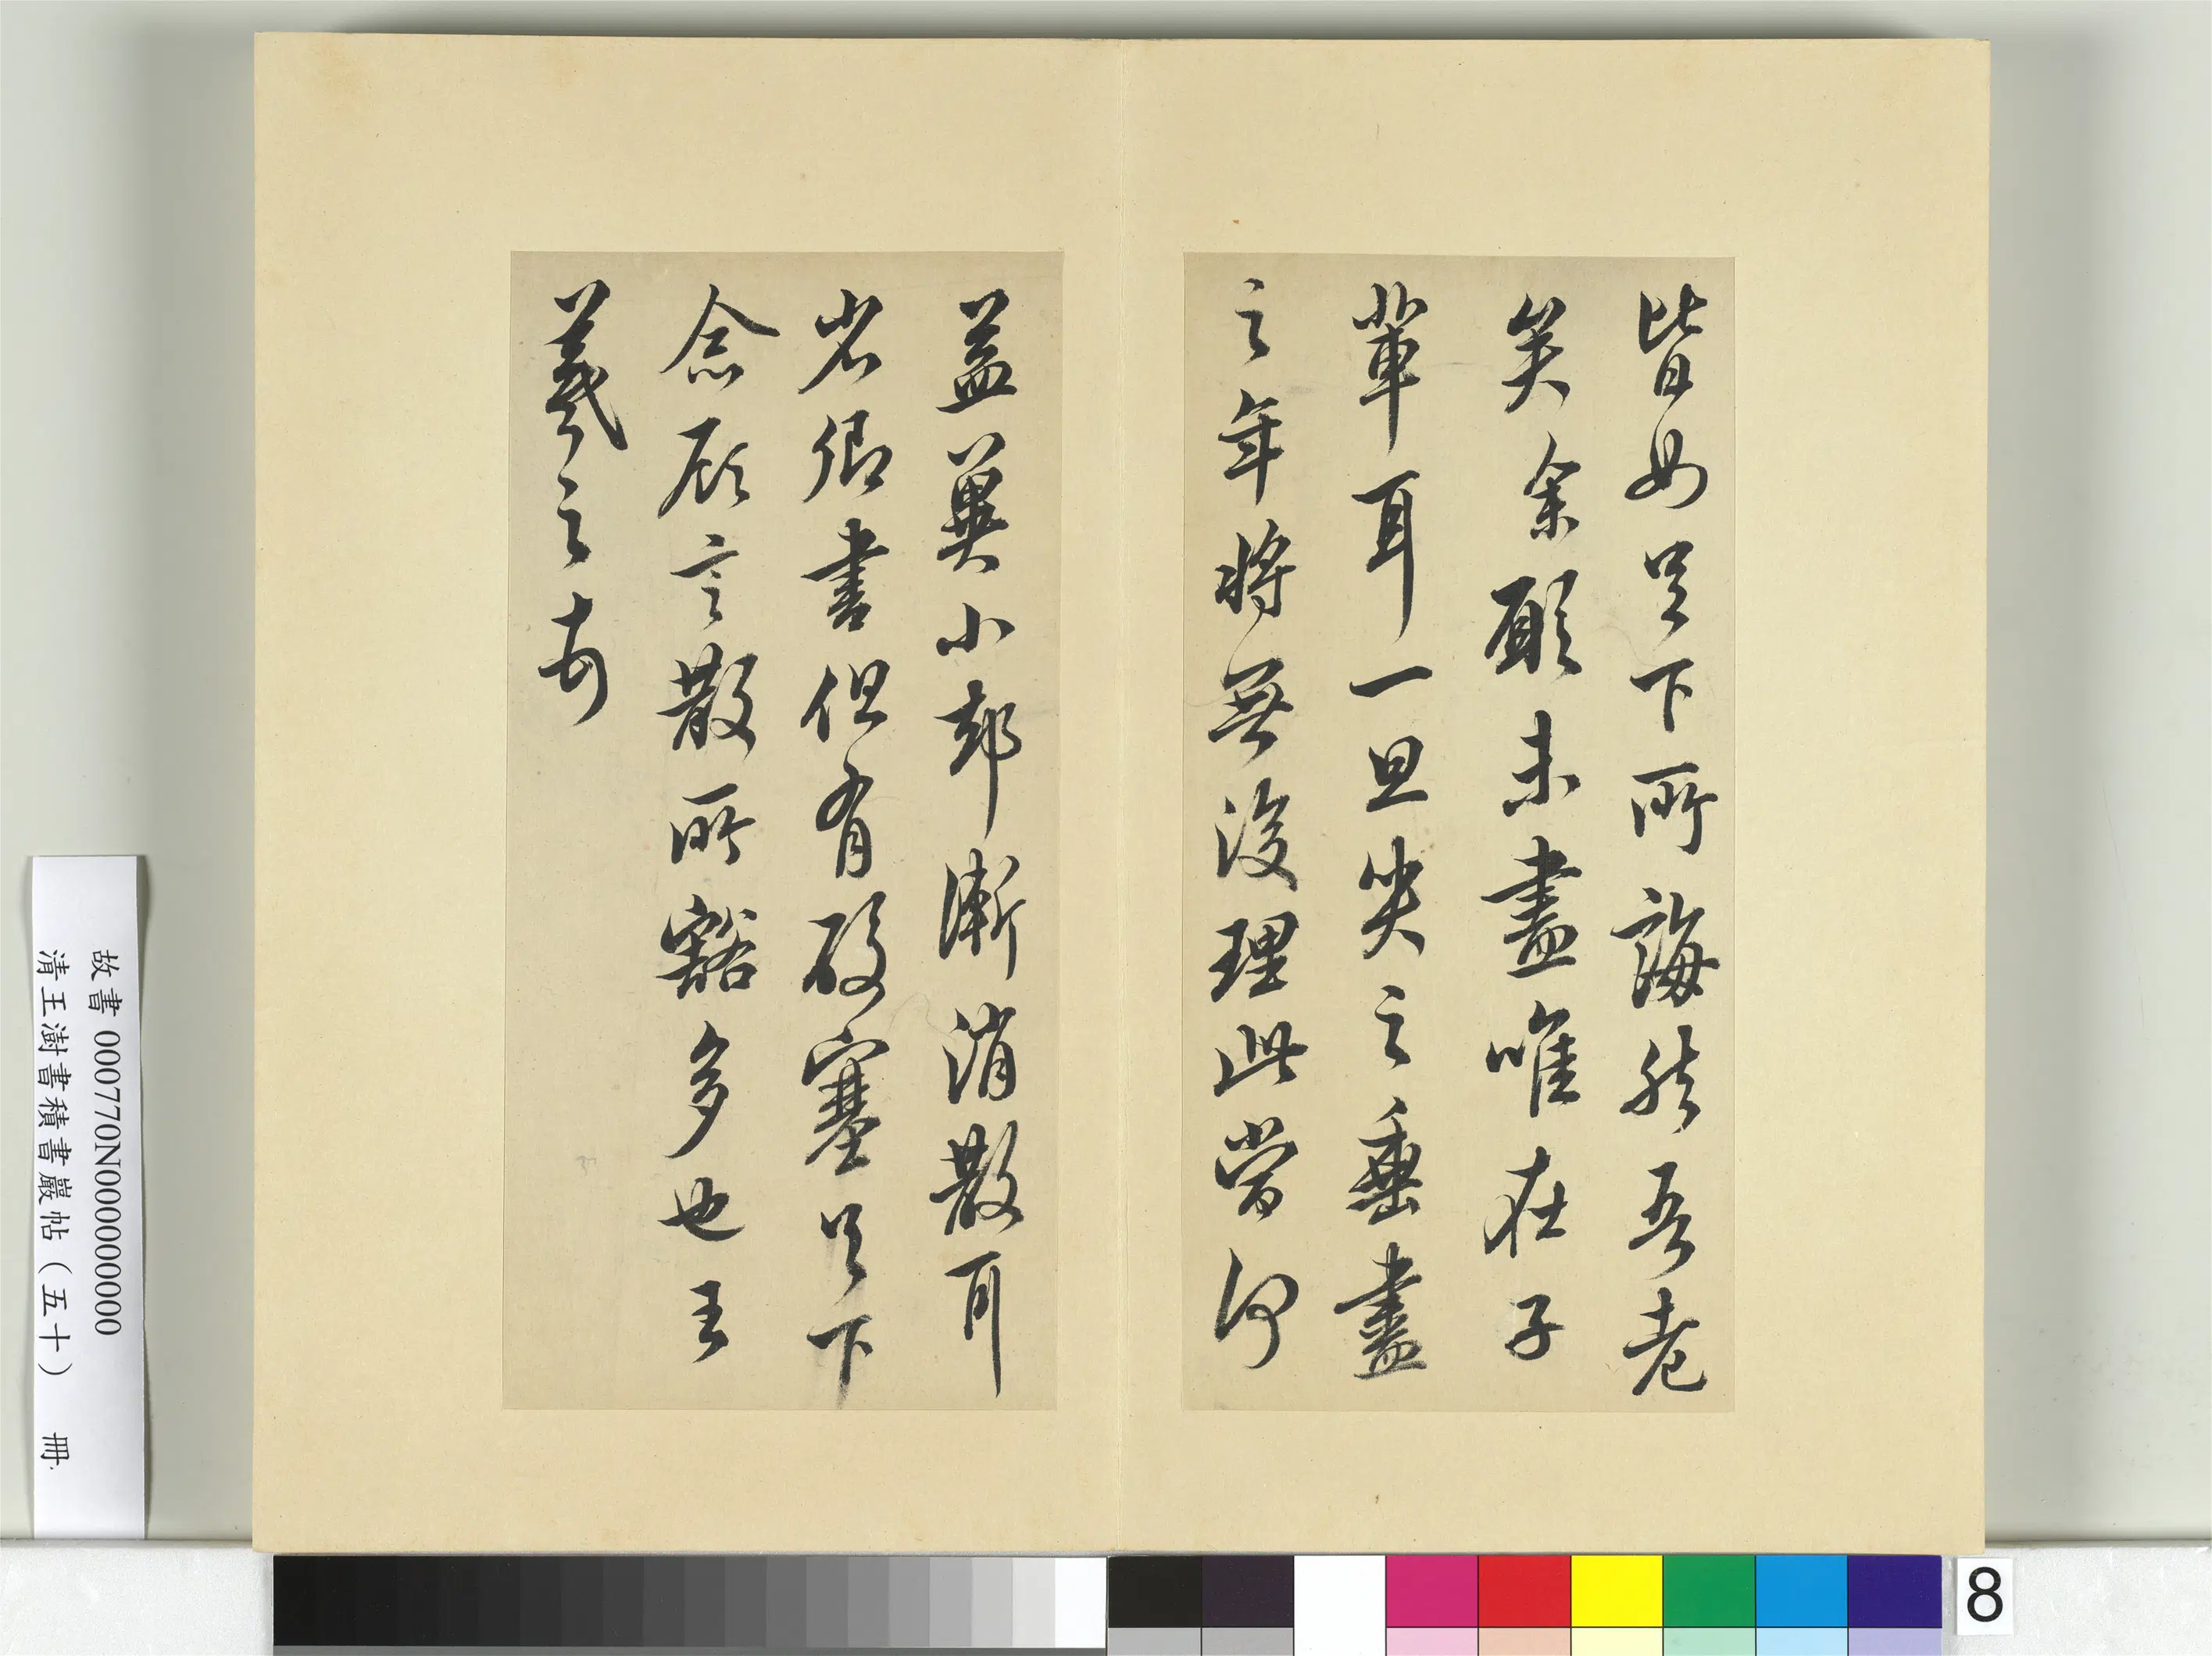 皆如足下所誨然吾老
矣余願未盡唯在子
輩耳一旦哭之垂盡
之年將無復理此當何
益冀小卻漸消散耳
省卿書但有酸塞足下
念顧言散所豁多也王
羲之
故書 000770N000000000
清王澍書積書巖帖(五十) 冊
8